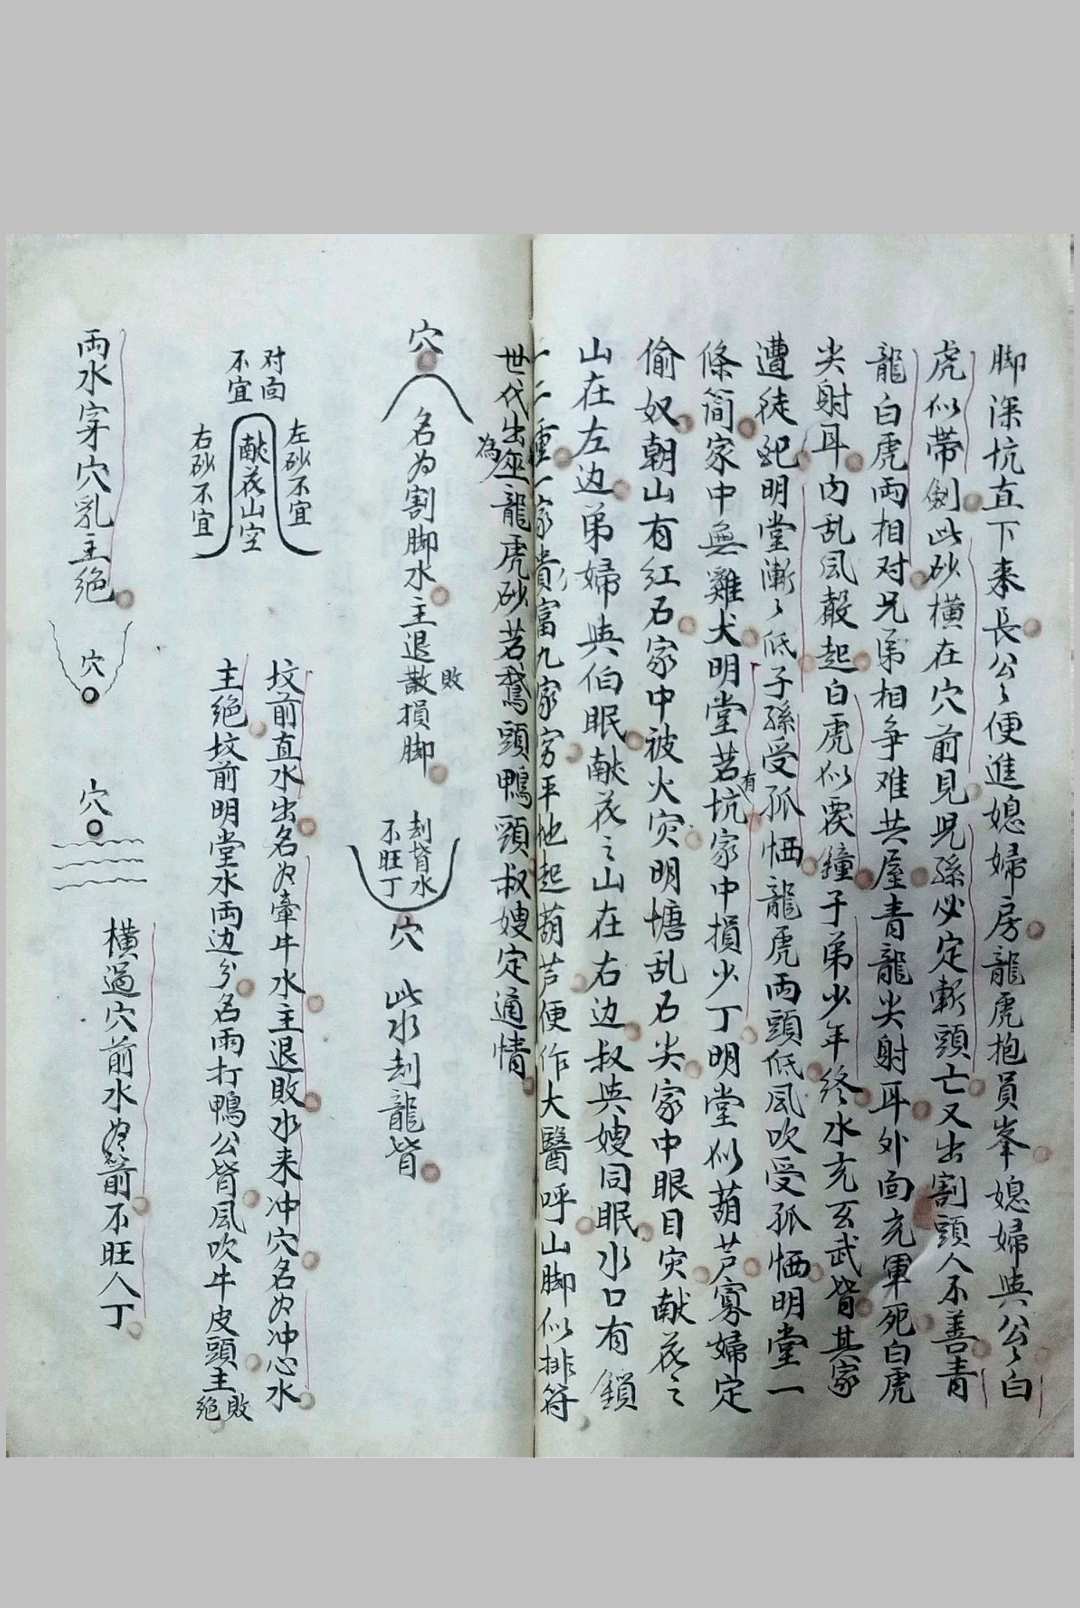 脚深坑直下来長公々便進媳婦房龍虎抱員峯媳婦與公々白
虎似帶劍此砂橫在穴前見兒孫必定斬頭亡又出割頭人不善青
龍白虎兩相对兄弟相争难共屋青龍尖射耳外面充軍死白虎
尖射耳内乱風聲起白虎似覆鐘子弟少年終水克玄武皆其家
遭徒配明堂漸々低子孫受孤恓龍虎両頭低風吹受孤恓明堂一
條简家中無雞犬明堂若有坑家中損少丁明堂似葫芦寡婦定
偷奴朝山有红石家中被火灾明塘乱石尖家中眼目灾献花之
山在左边弟婦與伯眠献花之山在右边叔與嫂同眠水口有鎖
一二重一家貴富九家穷平地起葫芦便作大醫呼山脚似排符
世代出為巫龍虎砂若鵞頭鴨頭叔嫂定通情
穴
名为割脚水主退散敗損脚
刦背水
不旺丁
穴
此水刦龍背
对面
不宜
左砂不宜
献花山空
右砂不宜
坟前直水出名为牽牛水主退敗水来冲穴名为冲心水
主绝坟前明堂水両边分名雨打鴨公背風吹牛皮頭主敗绝
両水穿穴乳主绝
穴
穴
橫過穴前水为箭不旺人丁